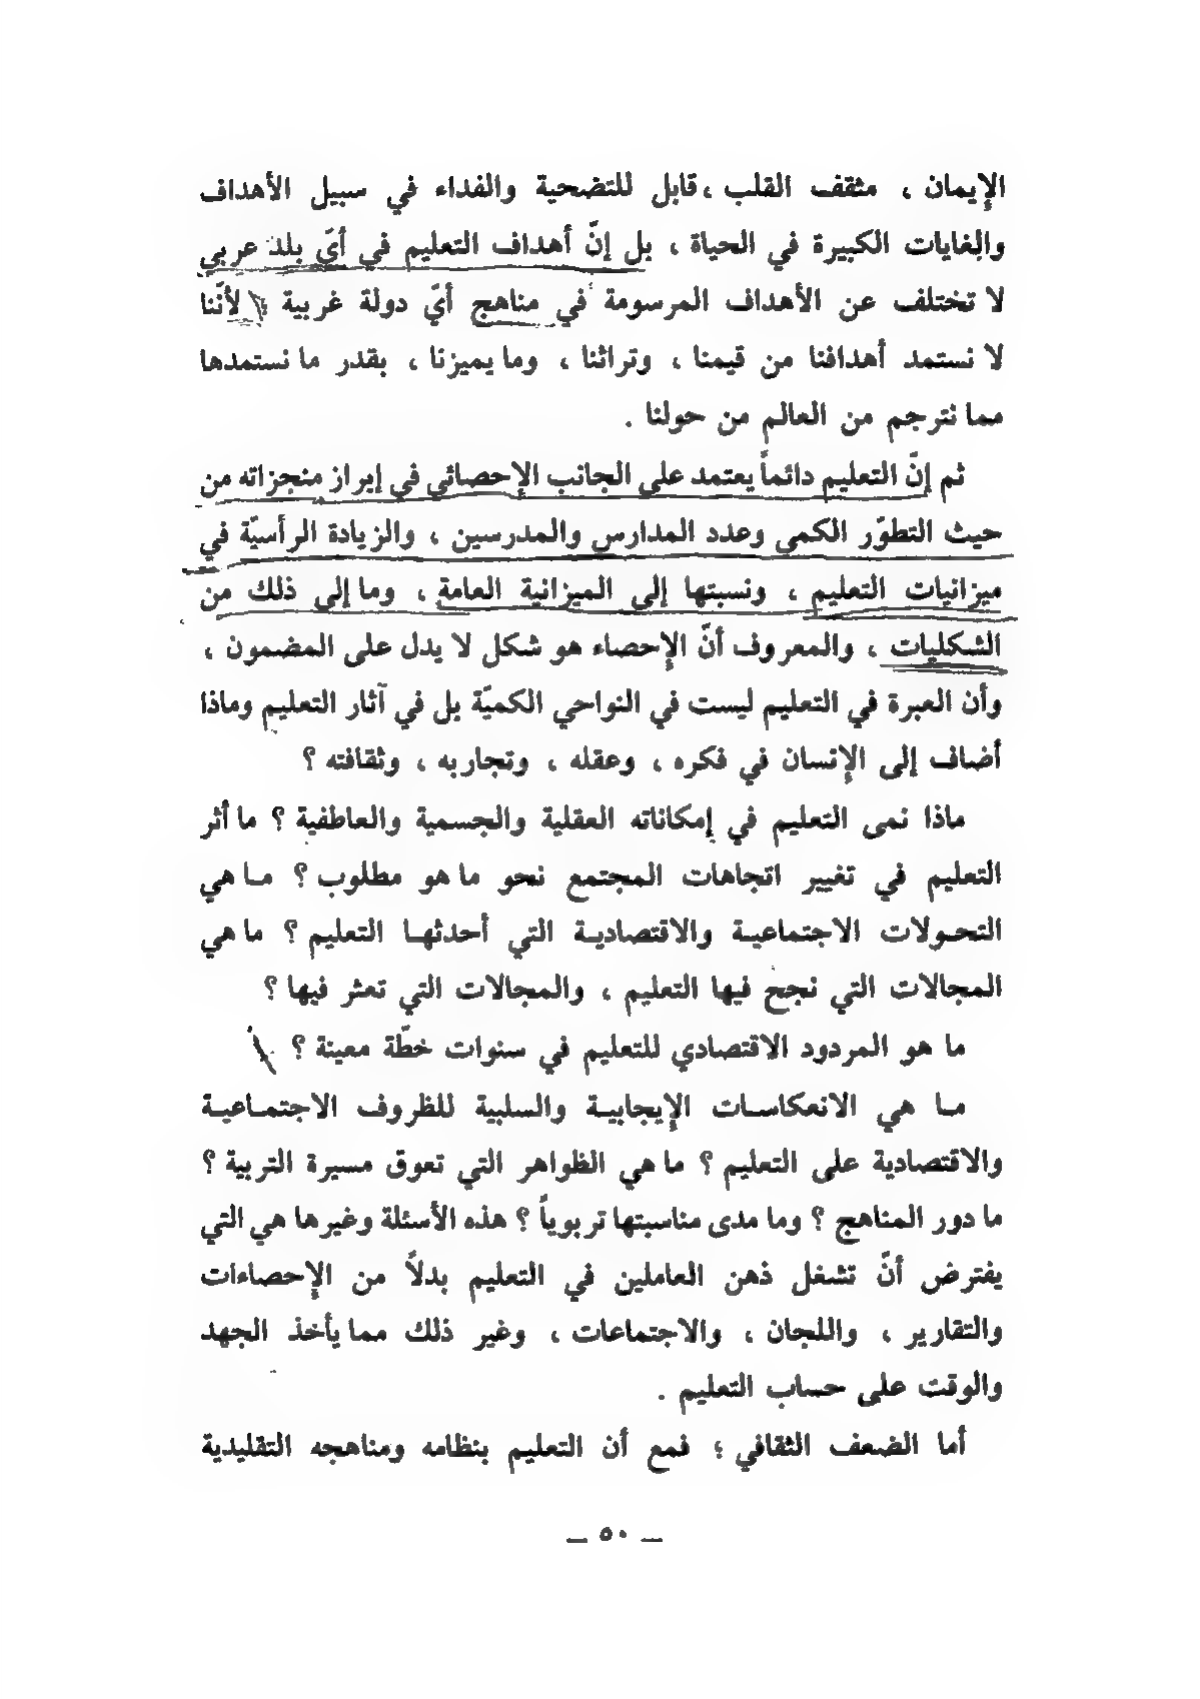 الإيمان ، مثقف القلب ، قابل للتضحية والفداء في سبيل الأهداف
والغايات الكبيرة في الحياة ، بل إنّ أهداف التعليم في أيّ بلد عربي
لا تختلف عن الأهداف المرسومة في مناهج أيّ دولة غربية ؛ لأنّنا
لا نستمد أهدافنا من قيمنا ، وتراثنا ، وما يميزنا ، بقدر ما نستمدها
مما نترجم من العالم من حولنا .
ثم إنّ التعليم دائماً يعتمد على الجانب الإحصائي في إبراز منجزاته من
حيث التطوّر الكمي وعدد المدارس والمدرسين ، والزيادة الرأسيّة في
ميزانيات التعليم ، ونسبتها إلى الميزانية العامة ، وما إلى ذلك من
الشكليات ، والمعروف أنّ الإحصاء هو شكل لا يدل على المضمون ،
وأن العبرة في التعليم ليست في النواحي الكميّة بل في آثار التعليم وماذا
أضاف إلى الإنسان في فكره ، وعقله ، وتجاربه ، وثقافته ؟
ماذا نمى التعليم في إمكاناته العقلية والجسمية والعاطفية ؟ ما أثر
التعليم في تغيير اتجاهات المجتمع نحو ما هو مطلوب ؟ مـا هي
التحـولات الاجتماعيـة والاقتصاديـة التي أحدثهـا التعليم ؟ ما هي
المجالات التي نجح فيها التعليم ، والمجالات التي تعثر فيها ؟
ما هو المردود الاقتصادي للتعليم في سنوات خطّة معينة ؟
مـا هي الانعكاسـات الإيجابيـة والسلبية للظروف الاجتمـاعيـة
والاقتصادية على التعليم ؟ ما هي الظواهر التي تعوق مسيرة التربية ؟
ما دور المناهج ؟ وما مدى مناسبتها تربوياً ؟ هذه الأسئلة وغيرها هي التي
يفترض أنّ تشغل ذهن العاملين في التعليم بدلاً من الإحصاءات
والتقارير ، واللجان ، والاجتماعات ، وغير ذلك مما يأخذ الجهد
والوقت على حساب التعليم .
أما الضعف الثقافي ؛ فمع أن التعليم بنظامه ومناهجه التقليدية
— ٥٠ —